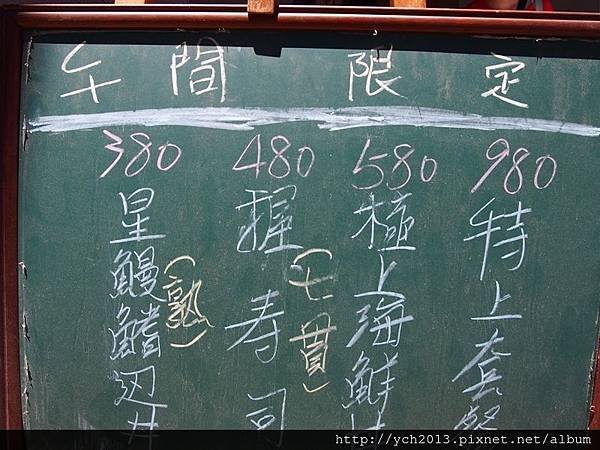 午間 限定
380 480 580 980
星鰻鰭边丼
(熟)
握寿司
(七貫)
極上海鮮
特上套餐
http://ych2013.pixnet.net/album